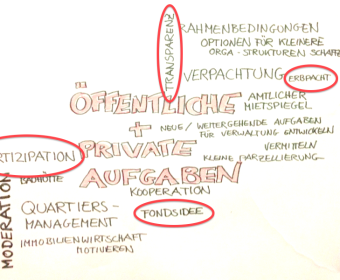 TRANSPARENZ
RAHMENBEDINGUNGEN
OPTIONEN FÜR KLEINERE
ORGA-STRUKTUREN SCHAFF
VERPACHTUNG ERBPACHT
ÖFFENTLICHE
AMTLICHER
MIETSPIEGEL
+
NEUE/ WEITERGEHENDE AUFGABEN
FÜR VERWALTUNG ENTWICKELN
RTIZIPATION
PRIVATE
VERMITTELN
KLEINE PARZELLIERUNG
AUFGABEN
BAUHÜTTE
KOOPERATION
QUARTIERS-
MANAGEMENT
FONDSIDEE
IMMOBILIENWIRTSCHAFT
MOTIVIEREN
MODERATION